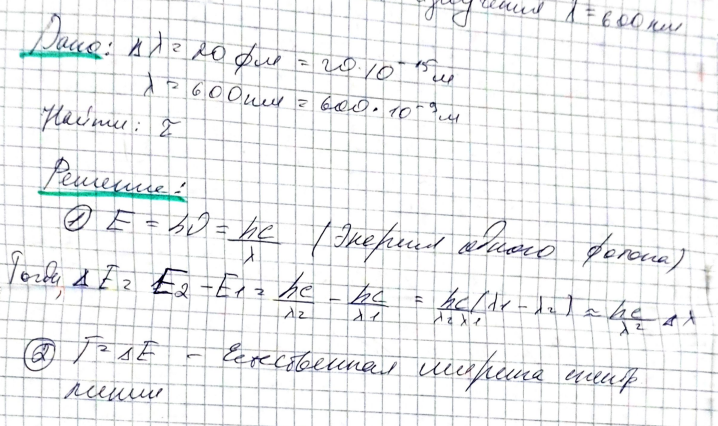 излучения λ = 600 нм
Дано: Δλ = 20 фм = 20·10⁻¹⁵ м
λ = 600 нм = 600·10⁻⁹ м
Найти: τ
Решение:
① E = hν = hc/λ (Энергия одного фотона)
Тогда, ΔE = E₂ - E₁ = hc/λ₂ - hc/λ₁ = hc/λ₂λ₁ (λ₁ - λ₂) ≈ hc/λ² Δλ
② Γ = ΔE - Естественная ширина спектр
линии